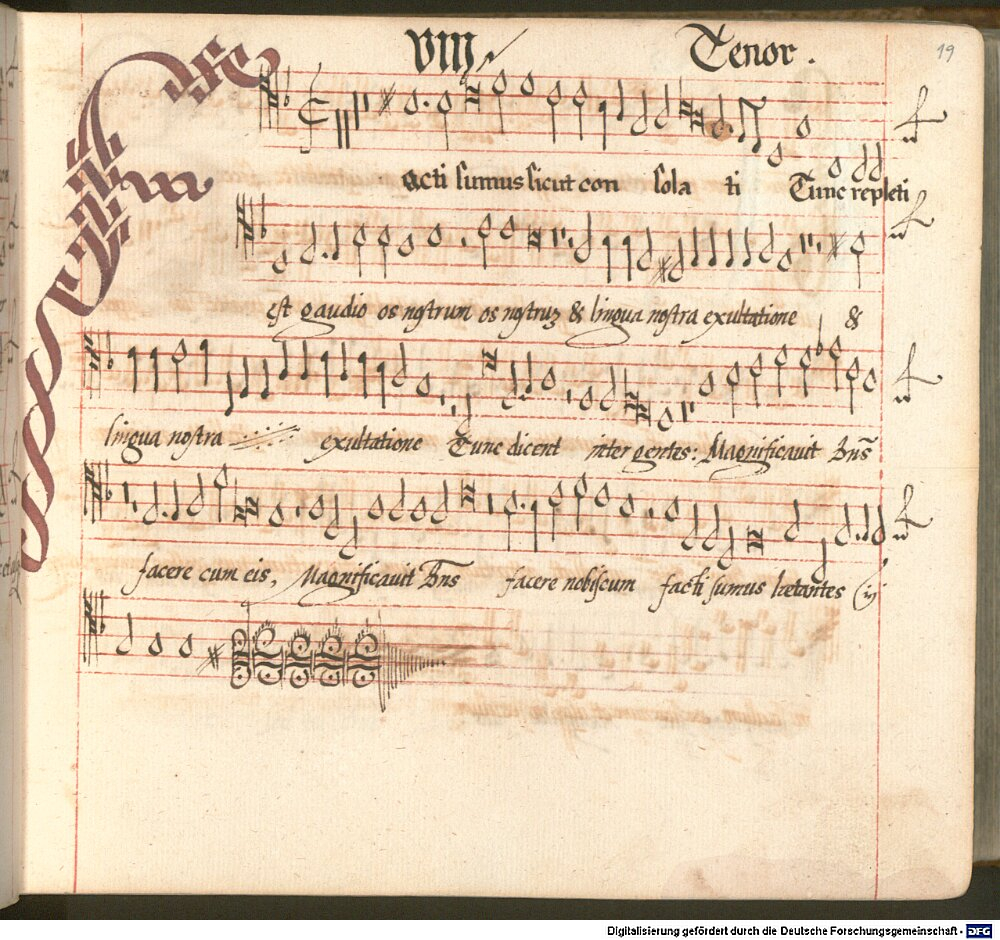 VIII
Tenor.
19
Facti sumus sicut con sola ti Tunc repleti
est gaudio os nostrum os nostruz & lingua nostra exultatione &
lingua nostra exultatione Tunc dicent inter gentes: Magnificauit Dns̄
facere cum eis, Magnificauit Dns facere nobiscum facti sumus lætantes (ij
Digitalisierung gefördert durch die Deutsche Forschungsgemeinschaft - DFG